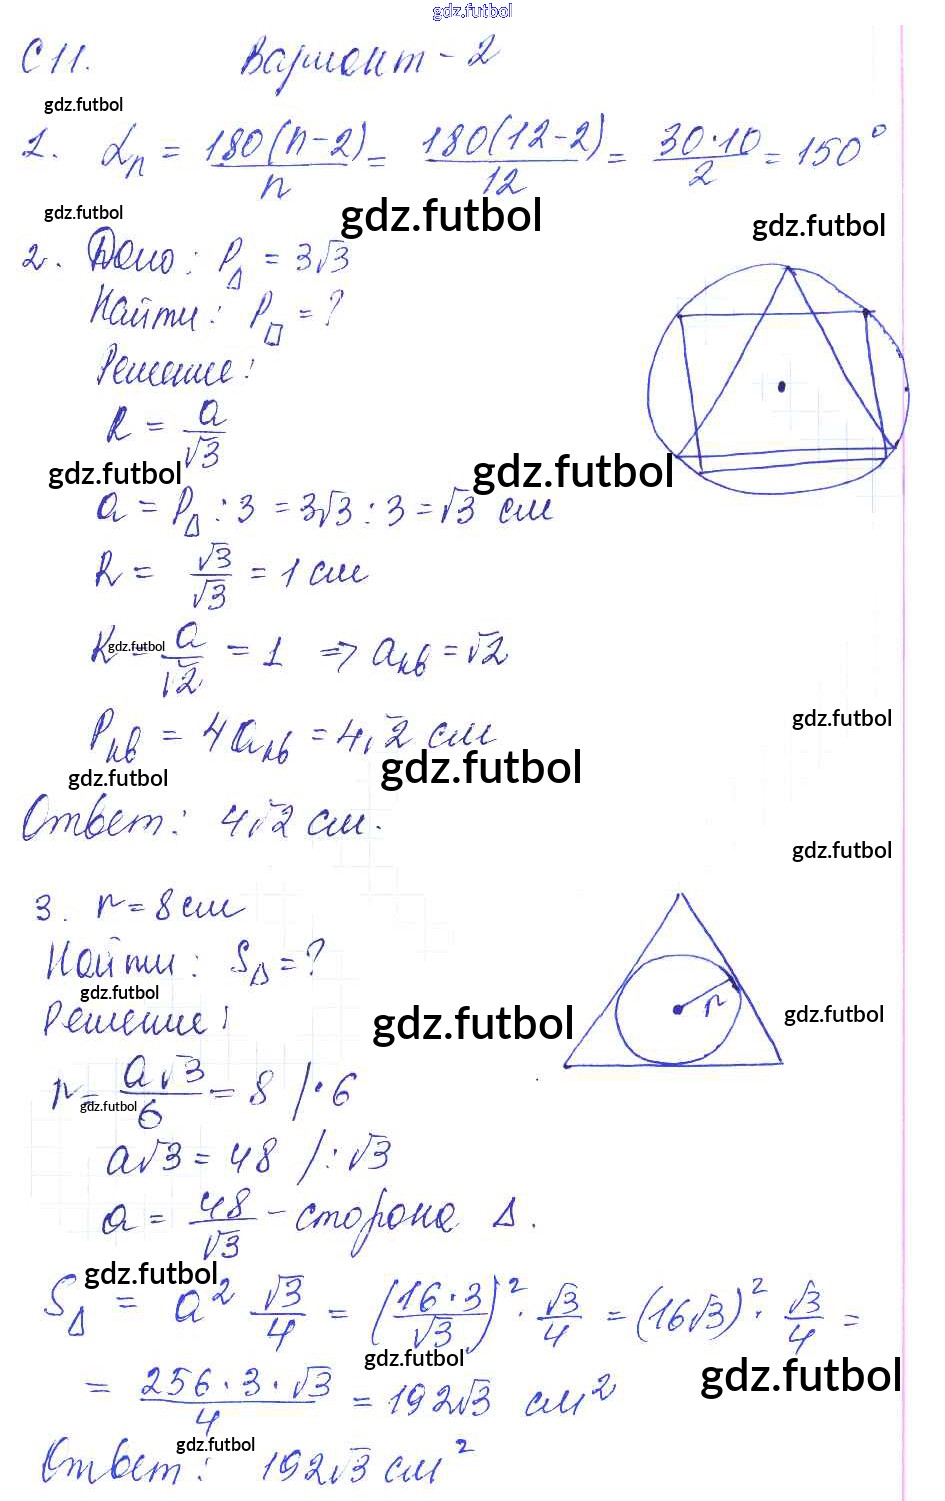 gdz.futbol
С11. Вариант - 2
gdz.futbol
1. αn = 180(n-2)/n = 180(12-2)/12 = 30·10/2 = 150°
gdz.futbol gdz.futbol gdz.futbol
2. Дано: P△ = 3√3
Найти: P□ = ?
Решение:
R = a/√3
gdz.futbol gdz.futbol
a = P△ : 3 = 3√3 : 3 = √3 см
R = √3/√3 = 1 см
R = a/√2 = 1 => aкв = √2
gdz.futbol
gdz.futbol
Pкв = 4aкв = 4√2 см
gdz.futbol gdz.futbol
Ответ: 4√2 см.
gdz.futbol
3. r = 8 см
Найти: S△ = ?
gdz.futbol
Решение:
gdz.futbol gdz.futbol
r
r = a√3/6 = 8 /·6
gdz.futbol
a√3 = 48 /:√3
a = 48/√3 - сторона △.
gdz.futbol
S△ = a² √3/4 = (16·3/√3)² · √3/4 = (16√3)² · √3/4 =
gdz.futbol gdz.futbol
= 256·3·√3/4 = 192√3 см²
gdz.futbol
Ответ: 192√3 см²